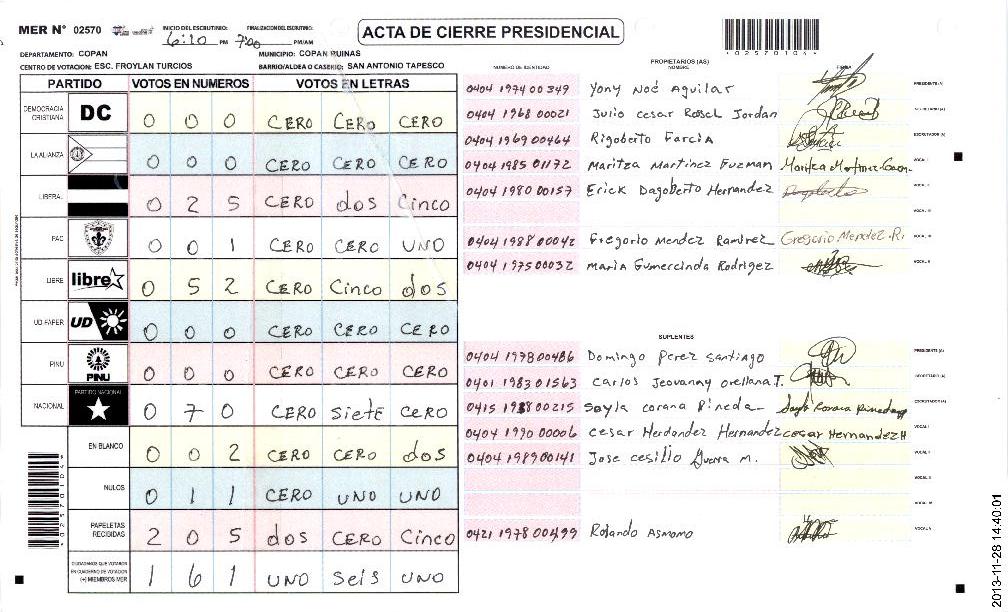 MER N° 02570
INICIO DEL ESCRUTINIO: 6:10 PM
FINALIZACION DEL ESCRUTINIO: 7:00 PM/AM
ACTA DE CIERRE PRESIDENCIAL
DEPARTAMENTO: COPAN
MUNICIPIO: COPAN RUINAS
CENTRO DE VOTACION: ESC. FROYLAN TURCIOS
BARRIO/ALDEA O CASERIO: SAN ANTONIO TAPESCO
PARTIDO VOTOS EN NUMEROS VOTOS EN LETRAS
DEMOCRACIA CRISTIANA DC 0 0 0 CERO CERO CERO
LA ALIANZA 0 0 0 CERO CERO CERO
LIBERAL 0 2 5 CERO dos Cinco
PAC 0 0 1 CERO CERO UNO
LIBRE libre 0 5 2 CERO Cinco dos
UD.FAPER UD 0 0 0 CERO CERO CERO
PINU PINU 0 0 0 CERO CERO CERO
NACIONAL PARTIDO NACIONAL 0 7 0 CERO Siete CERO
EN BLANCO 0 0 2 CERO CERO dos
NULOS 0 1 1 CERO UNO UNO
PAPELETAS RECIBIDAS 2 0 5 dos CERO Cinco
CIUDADANOS QUE VOTARON EN CUADERNO DE VOTACION (+) MIEMBROS MER 1 6 1 UNO Seis UNO
PROPIETARIOS (AS)
NUMERO DE IDENTIDAD NOMBRE FIRMA
0404 1974 00349 Yony Noé Aguilar PRESIDENTE (A)
0404 1968 00021 Julio cesar Rosch Jordan SECRETARIO (A)
0404 1969 00464 Rigoberto Farcia ESCRUTADOR (A)
0404 1985 01172 Maritza Martinez Fuzman VOCAL I
0404 1980 00157 Erick Dagoberto Hernandez VOCAL II
VOCAL III
0404 1988 00042 Gregorio Mendez Ramirez Gregorio Mendez.R.
0404 1975 00032 Maria Gumercinda Rodrigez
SUPLENTES
0404 1978 00486 Domingo Perez Santiago PRESIDENTE (A)
0401 1983 01563 Carlos Jeovanny orellana T. SECRETARIO (A)
0415 1988 00215 Sayla corana Pineda ESCRUTADOR (A)
0404 1990 00006 cesar Herdandez Hernandez cesar Hernandez H VOCAL I
0404 1989 00141 Jose cesilio Guerra m. VOCAL II
0421 1978 00499 Rolando Asmomo
0257010
2013-11-28 14:40:01